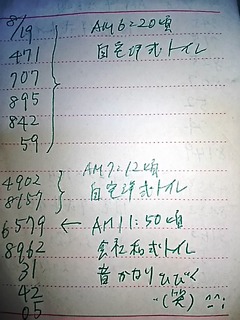 8/19
471
707
895
842
59
AM6:20頃
自宅洋式トイレ
4902
8157
AM7:12頃
自宅洋式トイレ
6579 ← AM11:50頃
8962 会社和式トイレ
31 音かなりひびく
42 (笑) ^^;
05